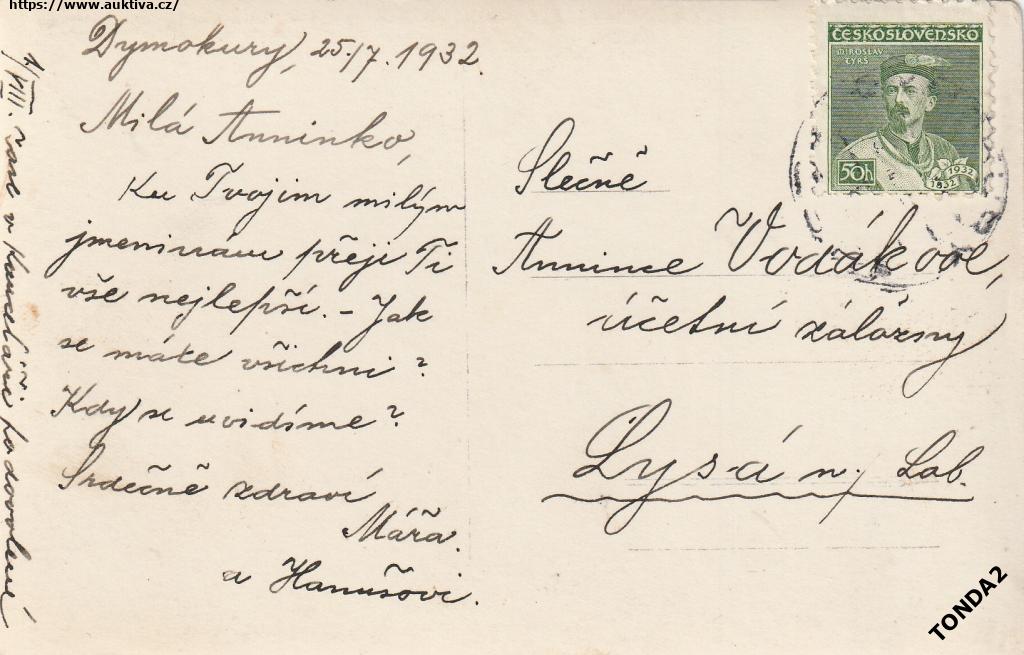 https://www.auktiva.cz/
Dymokury, 25./7. 1932.
Milá Anninko,
Ku Tvojim milým
jmeninám přeji Ti
vše nejlepší. - Jak
se máte všichni?
Kdy se uvidíme?
Srdečně zdraví
Mářa.
a Hanušovi.
1/VIII. zase v kanceláři po dovolené
ČESKOSLOVENSKO
MIROSLAV
TYRŠ
50h
1932
1832
Slečně
Annince Vodákové,
účetní záložny
Lysá n/ Lab.
TONDA2